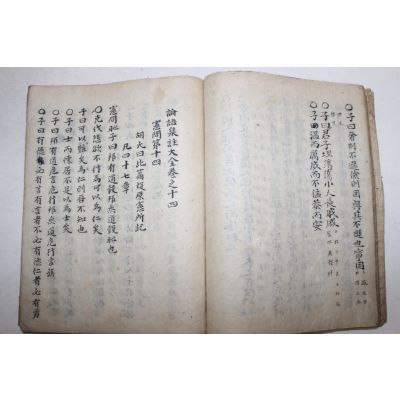 ○子曰奢則不遜儉則固與其不遜也寧固
○子曰君子坦蕩蕩小人長戚戚
○子溫而厲威而不猛恭而安
論語集註大全卷之十四
憲問第十四
胡氏曰此篇疑原憲所記
凡四十七章
憲問恥子曰邦有道穀邦無道穀恥也
○克伐怨欲不行焉可以為仁矣
子曰可以為難矣仁則吾不知也
○子曰士而懷居不足以為士矣
○子曰邦有道危言危行邦無道危行言孫
○子曰有德者必有言有言者不必有德仁者必有勇